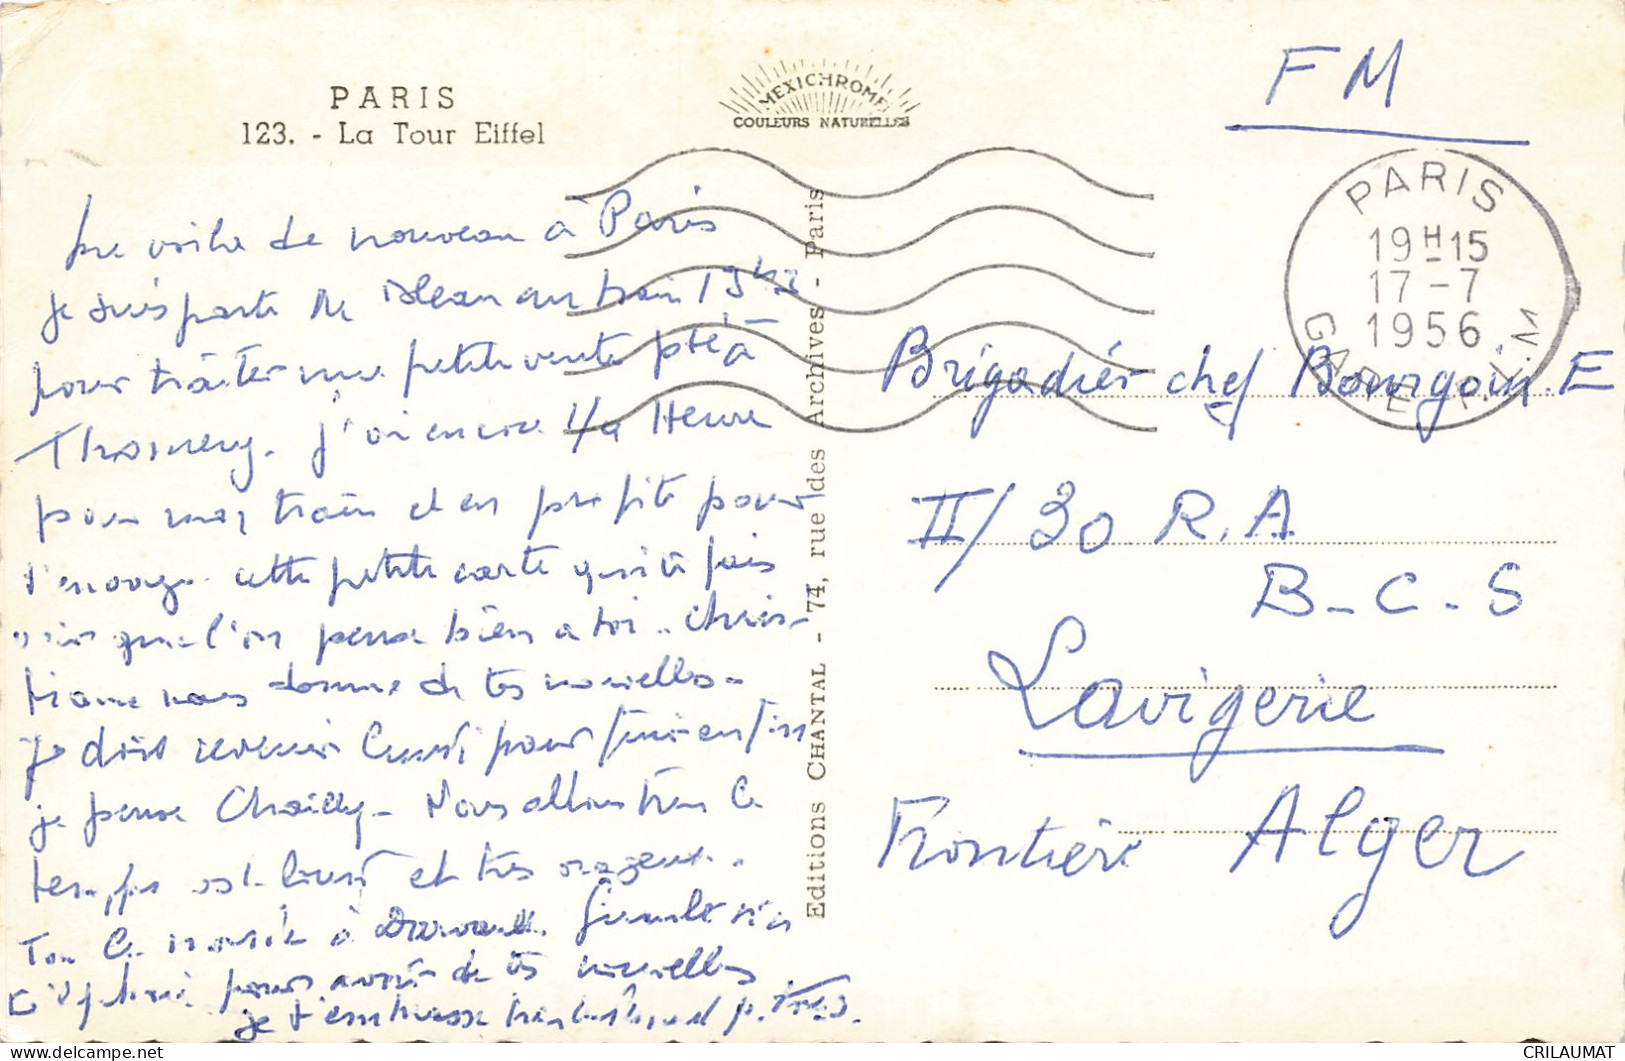 PARIS
123. - La Tour Eiffel
MEXICHROME
COULEURS NATURELLES
FM
PARIS
19H15
17-7
1956
GARE P.L.M
Editions CHANTAL - 74, rue des Archives - Paris
Me voilà de nouveau à Paris
je suis partie de au train
pour traiter une petite vente près à
Thomery. j'ai encore 1/2 Heure
pour mon train et en profite pour
t'envoyer cette petite carte qui te fais
voir que l'on pense bien a toi. Chris-
tiane nous donne de tes nouvelles.
je dois revenir Lundi pour finir enfin
je pense Chailly. Nous allons bien Le
temps est lourd et très orageux.
à
pour avoir de tes nouvelles
je t'embrasse bien
Brigadier chef Bourgoin. E
II/30 R.A
B-C-S
Lavigerie
Frontière Alger
CRILAUMAT